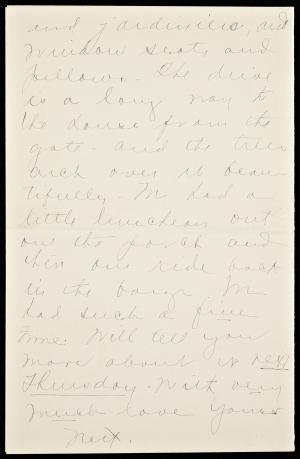 and jardiniers, and
window seats and
pillows. The drive
is a long way to
the house from the
gate - and the trees
arch over it beau
tifully. We had a
little luncheon out
on the porch and
then our ride back
in the barge. We
had such a fine
time. Will tell you
more about it next
Thursday. With very
much love yours